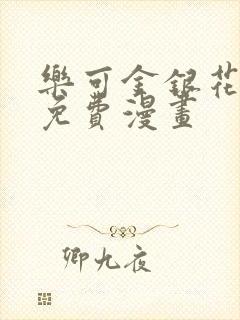 樂可金銀花
免費漫畫
卿九夜